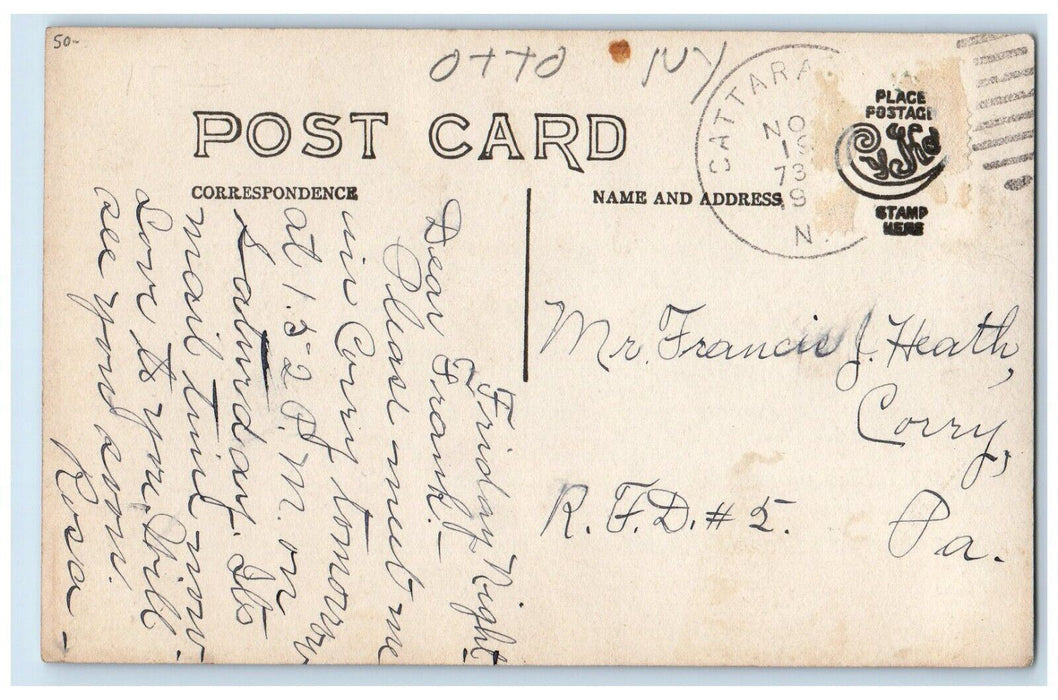 50-
OTTO NY
POST CARD
CORRESPONDENCE
NAME AND ADDRESS
PLACE
POSTAGE
STAMP
HERE
CATTARA
NO
19
N.
Friday Night
Dear Frank:-
Please meet me
in Corry tomorrow
at 1.52 P.M. on
Saturday. Its
mail time now
Love to you. Will
see you soon.
Rosa -
Mr. Francis J. Heath,
Corry,
R.F.D. #5. Pa.